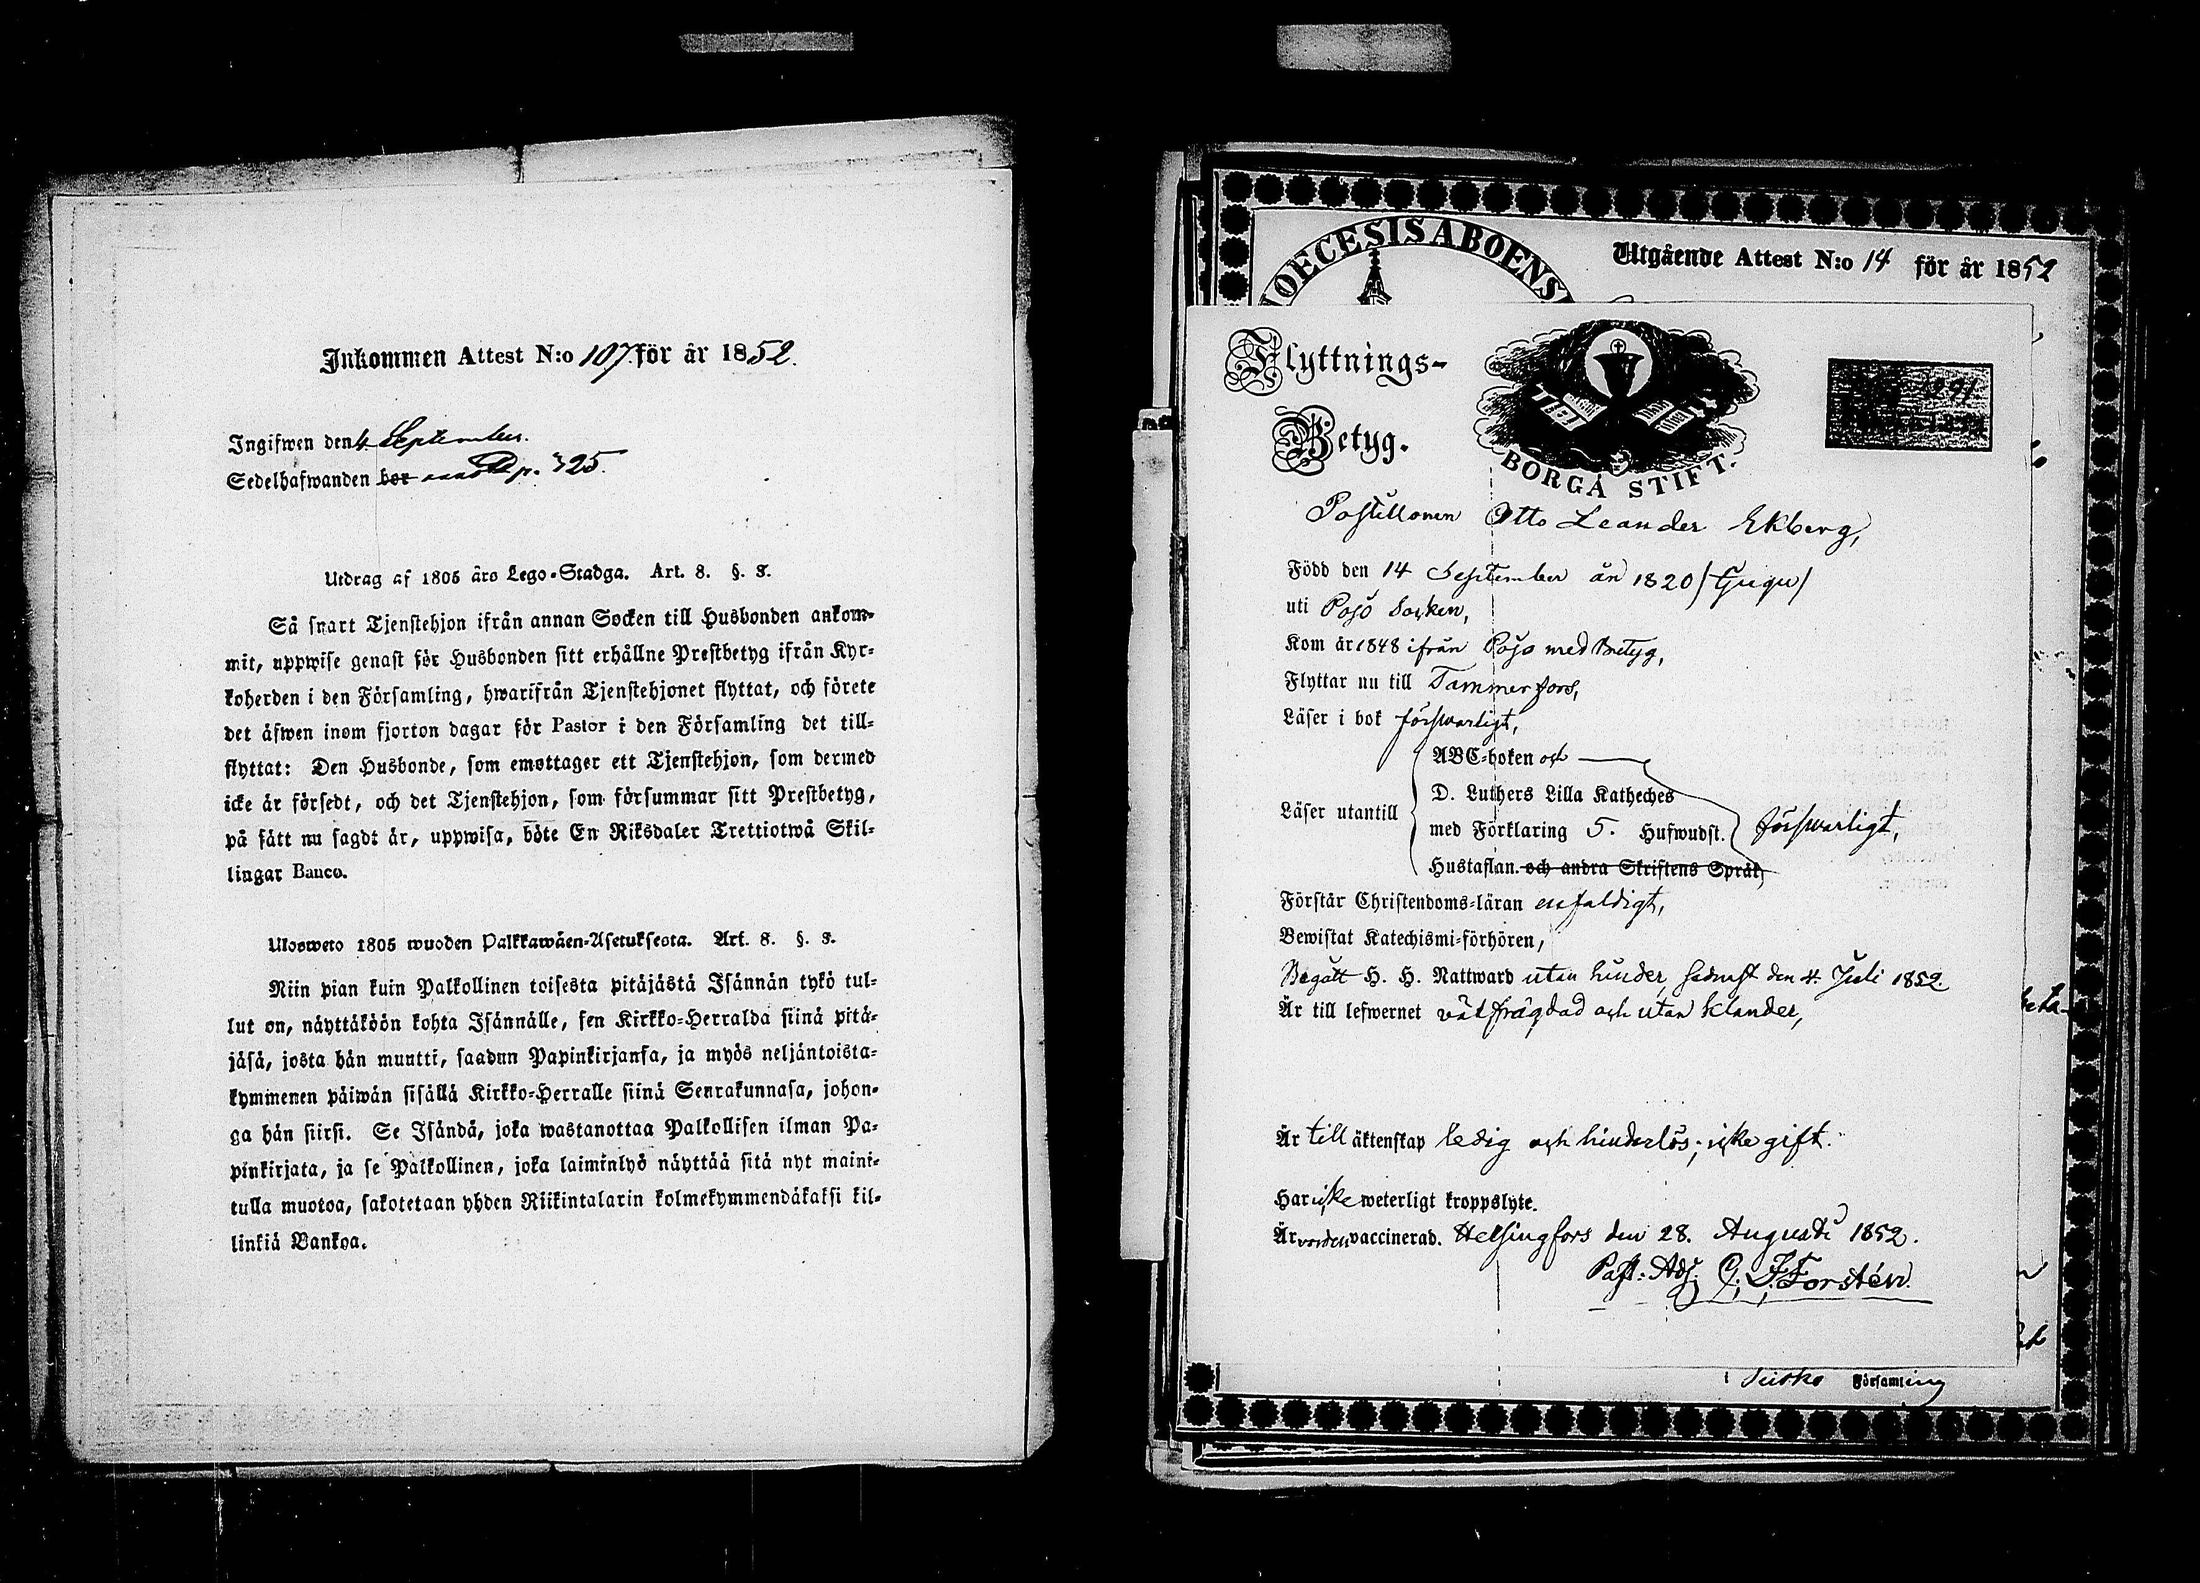 Inkommen Attest N:o 107. för år 1852.
Ingifwen den 4 September.
Sedelhafwanden bor p. 325.
Utdrag af 1805 års Lego-Stadga. Art. 8. §. 3.
Så snart Tjenstehjon ifrån annan Socken till Husbonden ankom-
mit, uppwise genast för Husbonden sitt erhållne Prestbetyg ifrån Kyr-
koherden i den Församling, hwarifrån Tjenstehjonet flyttat, och förete
det äfwen inom fjorton dagar för Pastor i den Församling det till-
flyttat: Den Husbonde, som emottager ett Tjenstehjon, som dermed
icke är försedt, och det Tjenstehjon, som försummar sitt Prestbetyg,
på sätt nu sagdt är, uppwisa, böte En Riksdaler Trettiotwå Skil-
lingar Banco.
Ulosweto 1805 wuoden Palkkawäen-Asetuksesta. Art. 8. §. 3.
Niin pian kuin Palkollinen toisesta pitäjästä Isännän tykö tul-
lut on, näyttäköön kohta Isännälle, sen Kirkko-Herralda siinä pitä-
jäsä, josta hän muutti, saadun Papinkirjansa, ja myös neljäntoista-
kymmenen päiwän sisällä Kirkko-Herralle siinä Seurakunnasa, johon-
ga hän siirsi. Se Isändä, joka wastanottaa Palkollisen ilman Pa-
pinkirjata, ja se Palkollinen, joka laiminlyö näyttää sitä nyt maini-
tulla muotoa, sakotetaan yhden Riikintalarin kolmekymmendäkaksi kil-
linkiä Bankoa.
DIOECESIS ABOENS
Utgående Attest N:o 14 för år 1852
Flyttnings-
Betyg.
BORGÅ STIFT.
Postillonen Otto Leander Ekberg,
Född den 14 September år 1820 /tjugu/
uti Pojo Socken,
Kom år 1848 ifrån Pojo med Betyg,
Flyttar nu till Tammerfors,
Läser i bok försvarligt,
ABC-boken och
D. Luthers Lilla Katheches
Läser utantill med Förklaring 5. Hufwudst. försvarligt,
Hustaflan. och andra Skriftens Språk,
Förstår Christendoms-läran enfaldigt,
Bewistat Katechismi-förhören,
Begått H. H. Nattward utan hinder, sednast den 4. Juli 1852.
Är till lefwernet välfrägdad och utan klander,
Är till äktenskap ledig och hinderlös; icke gift.
Har icke weterligt kroppslyte.
Är worden vaccinerad. Helsingfors den 28. Augusti 1852.
Past: Adj. G. F. Forstén.
Församling